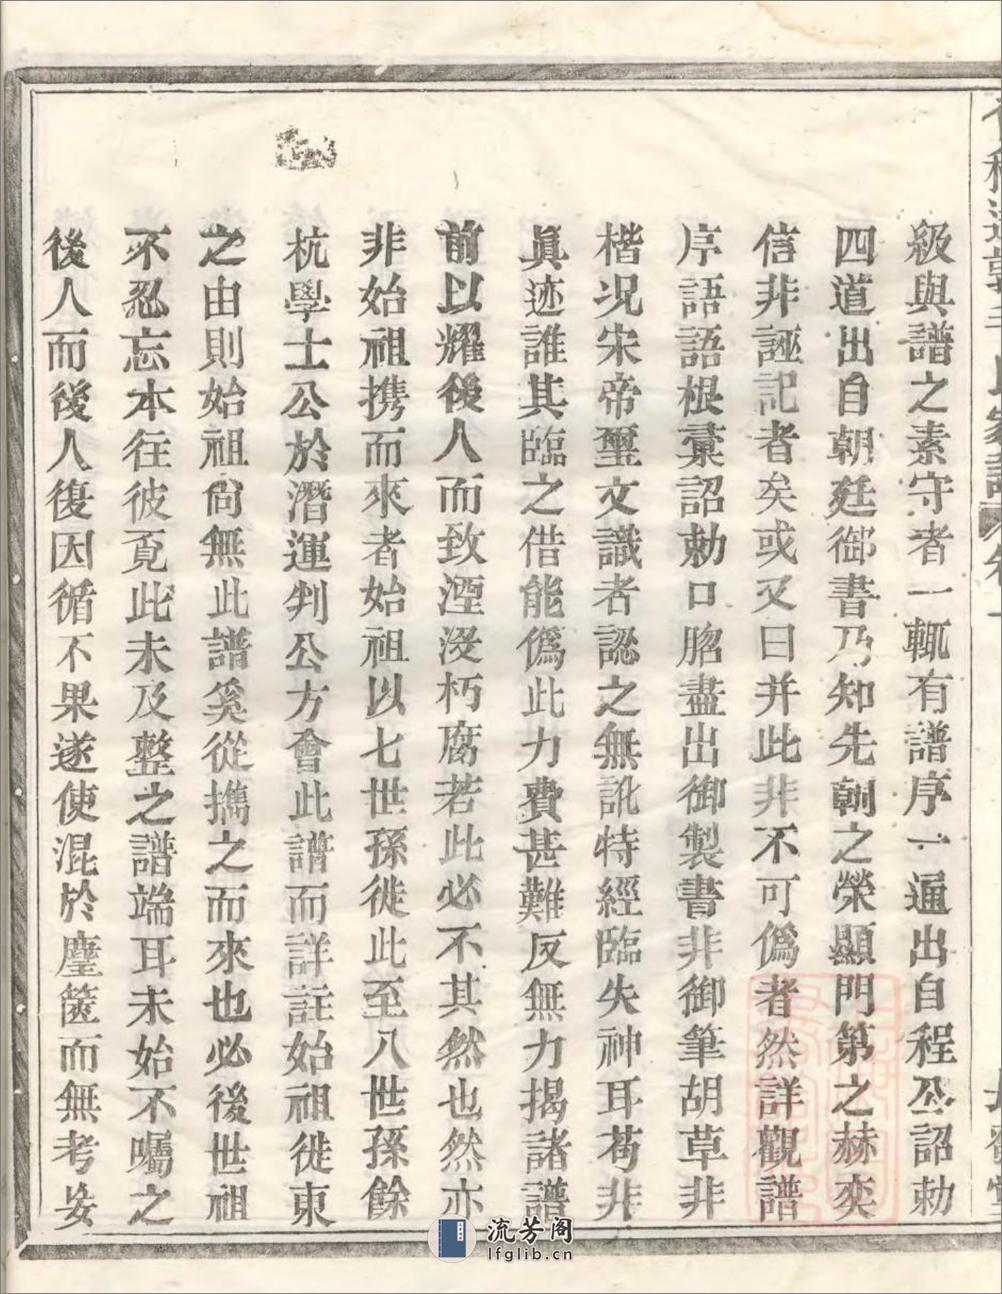 級與譜之素守者一輒有譜序一通出自程公詔勅
四道出自朝廷御書乃知先朝之榮顯門第之赫奕
信非誣記者矣或又曰并此非不可僞者然詳觀譜
序語語根稾詔勅口脗盡出御製書非御筆胡草非
楷况宋帝璽文識者認之無訛特經臨失神耳苟非
眞迹誰其臨之借能僞此力費甚難反無力揭諸譜
前以耀後人而致湮浸朽腐若此必不其然也然亦
非始祖携而來者始祖以七世孫徙此至八世孫餘
杭學士公於潛運判公方會此譜而詳註始祖徙東
之由則始祖尙無此譜奚從擕之而來也必後世祖
不忍忘本往彼覔此未及整之譜端耳未始不囑之
後人而後人復因循不果遂使混於塵篋而無考妄
流芳阁
lfglib.cn